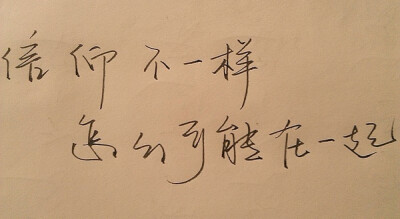 信仰不一样
怎么可能在一起